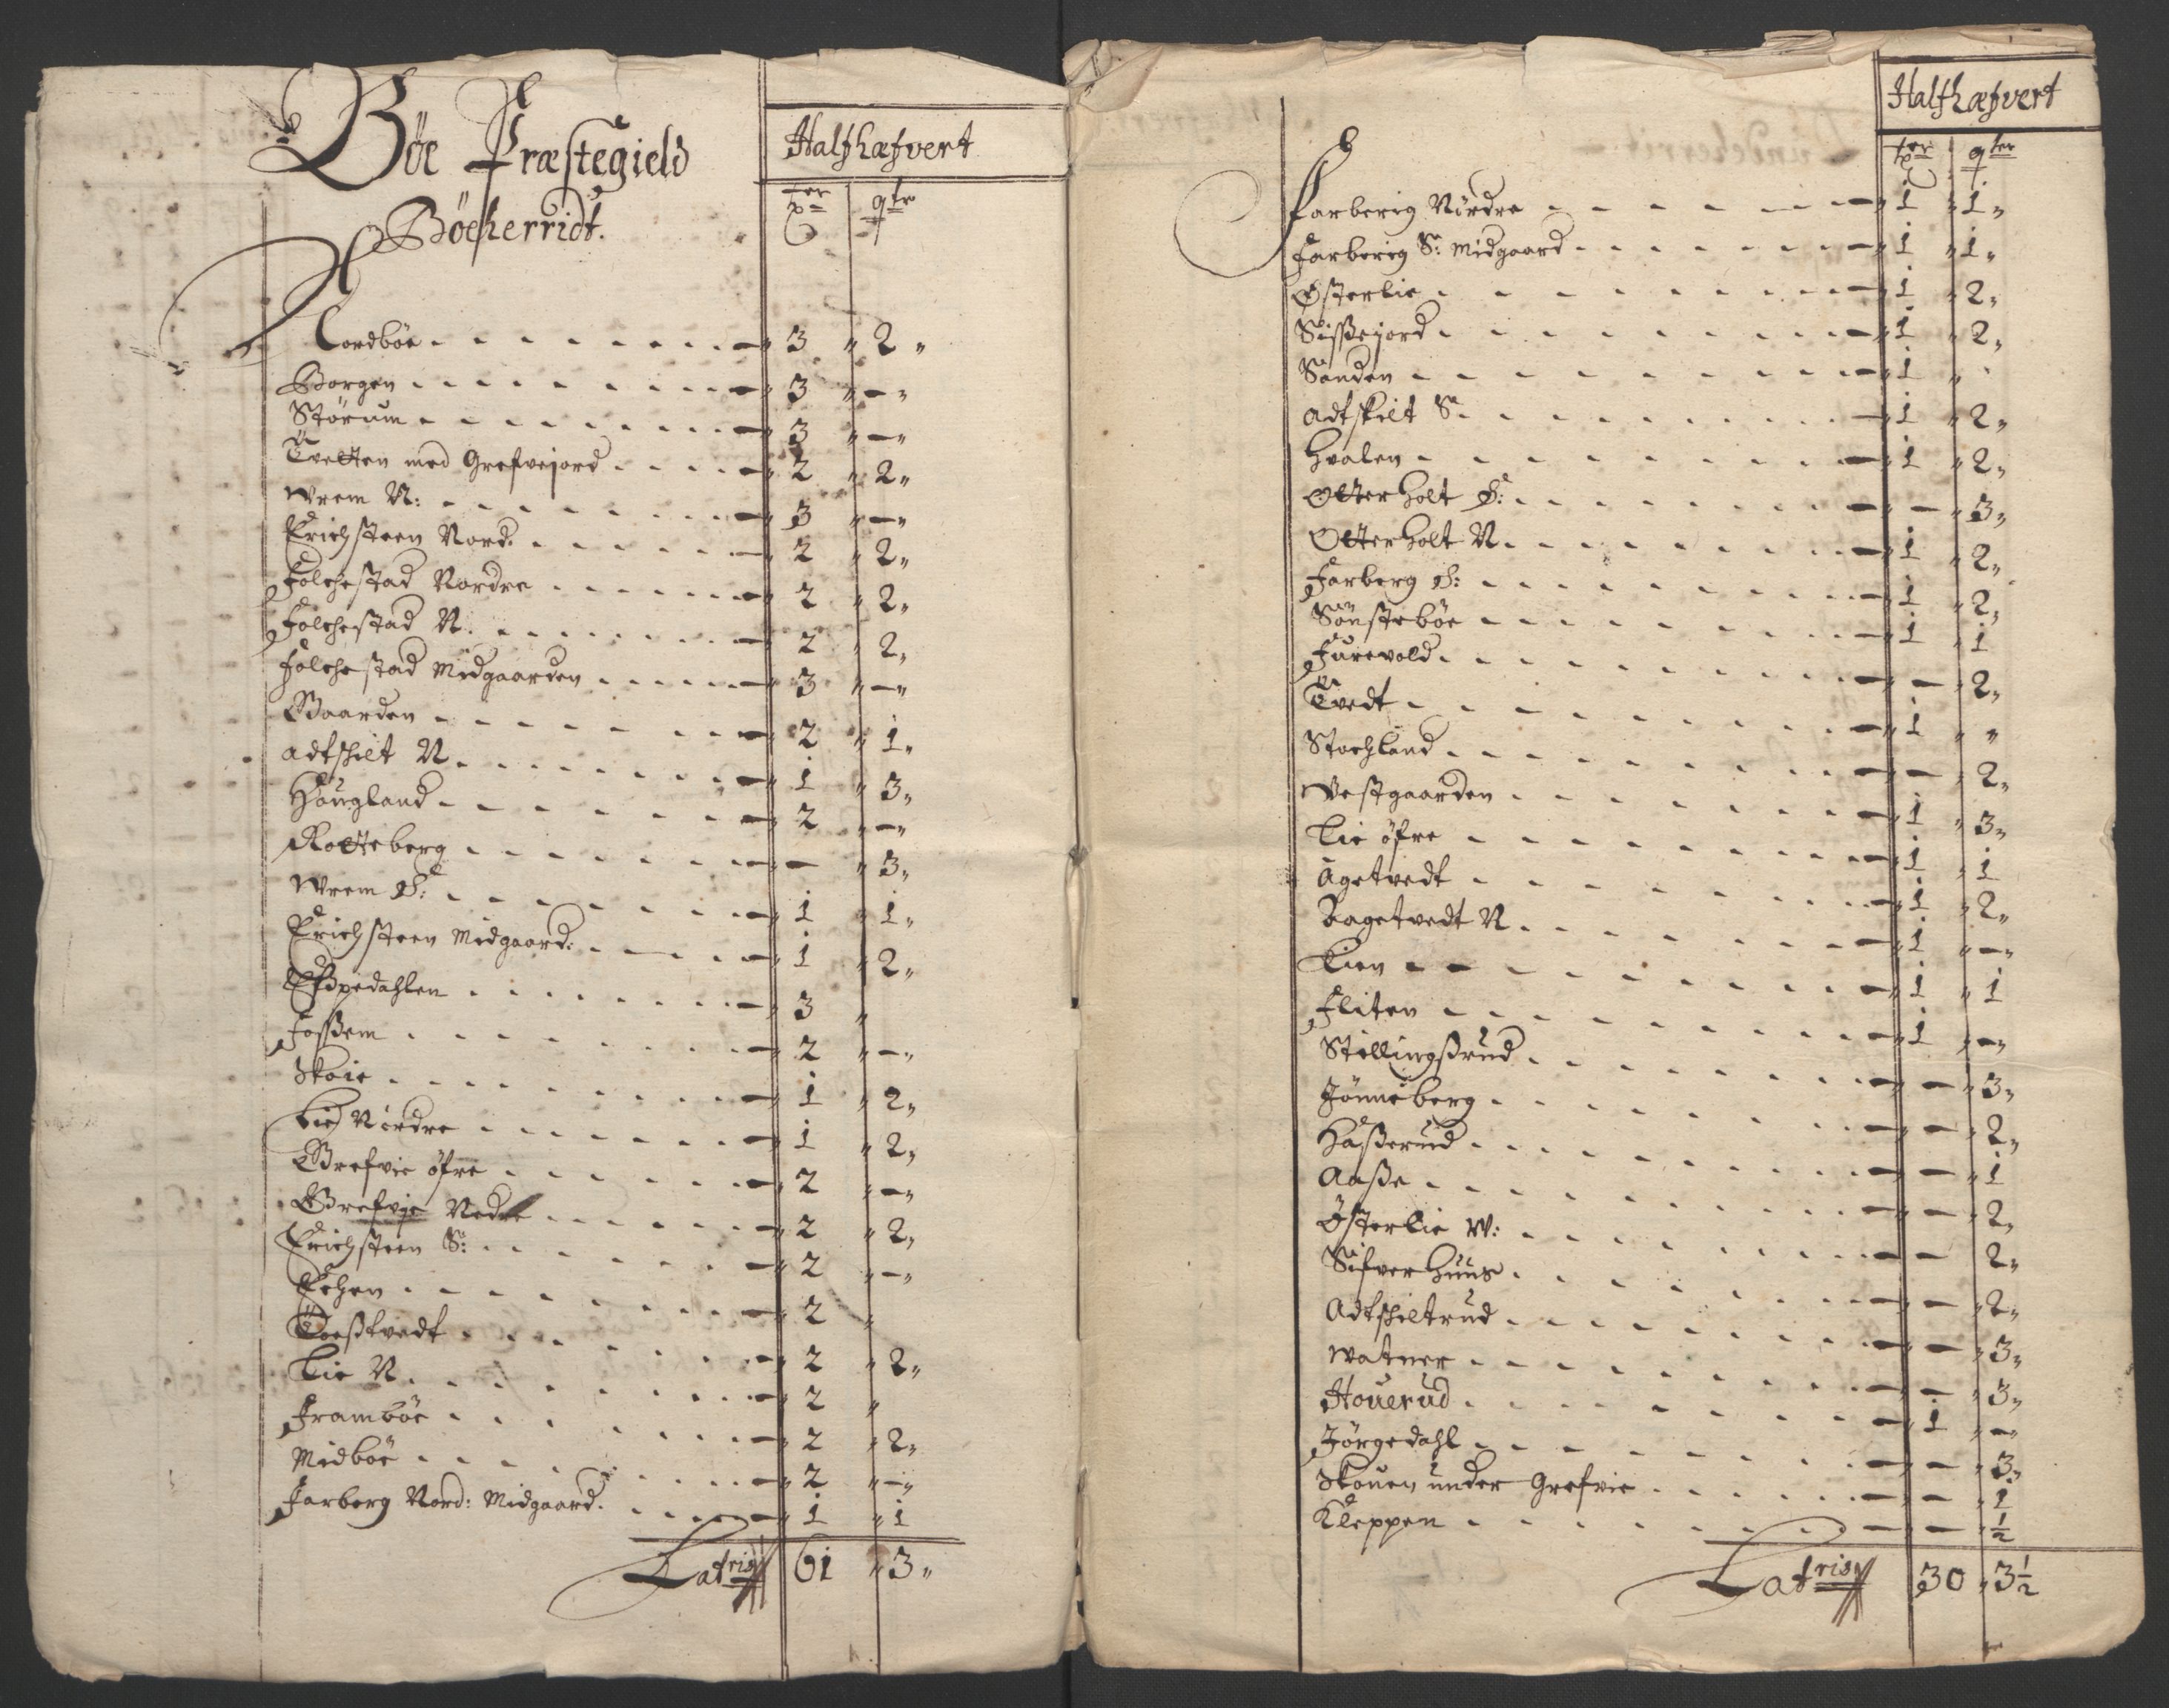 Böe Præstegield
Böeherridt.
Halfhæfvert
ter qtr
Nordböe 3 2
Borgen 3 -
Störum 3 -
Tvetten med Grefvejord 2 2
Wrem N: 3 -
Erichsteen Nord. 2 2
Folchestad Nordre 2 2
Folchestad N. 2 2
Folchestad Midgaarden 3 -
Gaarden 2 1
Adtschilt N. 1 3
Haugland 2 -
Rotteberg - 3
Wrem S: 1 1
Erichsteen Midgaard: 1 2
Espedahlen 3
Fossem 2 -
Skoie 1 2
Lie Nördre 1 2
Grefvie öfre 2 -
Grefvie Nedre 2 2
Erichsteen S: 2 -
Echen 2
Toestvedt 2 2
Lie N. 2
Framböe 2 2
Midböe 2 -
Farberg Nord: Midgaard. 1 1
Latris 61 3
Halfhæfvert
ter qter
Farberig Nördre 1 1
Farberig S: Midgaard 1 1
Østerlie 1 2
Sissejord 1 2
Sanden 1
Adtskilt S. 1 2
Hvalen 1 2
Otterholt S: - 3
Otterholt N. 1 2
Farberg S: 1 2
Sönsteböe 1 1
Furevold - 2
Tvedt 1
Stochland - 2
Westgaarden 1 3
Lie öfre 1 1
Agetvedt 1 2
Aagetvedt N. 1 -
Lien 1 1
Fliten 1 -
Stillingsrud - 3
Jönneberg - 2
Hasserud - 1
Aasse - 2
Østerlie W: - 2
Sifverhuus - 2
Adtschiltrud - 3
Watner - 3
Houerud 1 -
Jörgedahl - 3
Skouen under Grefvie - 1
Kleppen - ½
Latris 30 3½